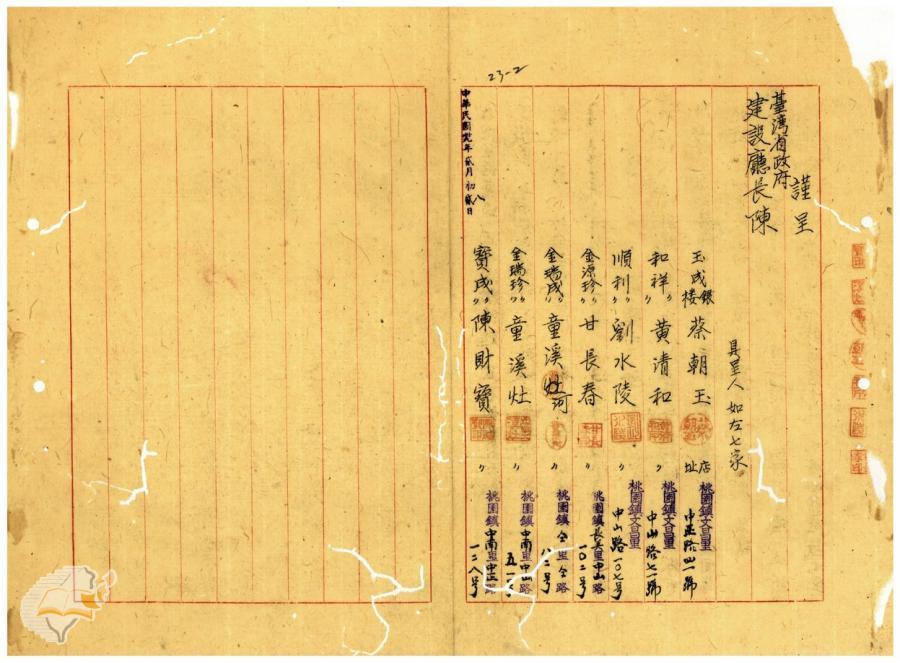 23-2
謹呈
臺灣省政府
建設廳長陳
具呈人 如左七家
玉成銀楼 蔡朝玉 店址 桃園鎮文昌里中正路四一號
和祥〃 黃清和 〃 桃園鎮文昌里中山路七一號
順利〃 劉水陵 〃 桃園鎮文昌里中山路一〇七号
金源珍〃 甘長春 〃 桃園鎮長美里中山路一〇二号
金瑞成〃 童溪河 〃 桃園鎮仝里仝路八二号
金瑞珍〃 童溪灶 〃 桃園鎮中南里中山路五一号
寶成〃 陳財寶 〃 桃園鎮中南里中正路一二八号
中華民國 年貳月初八日